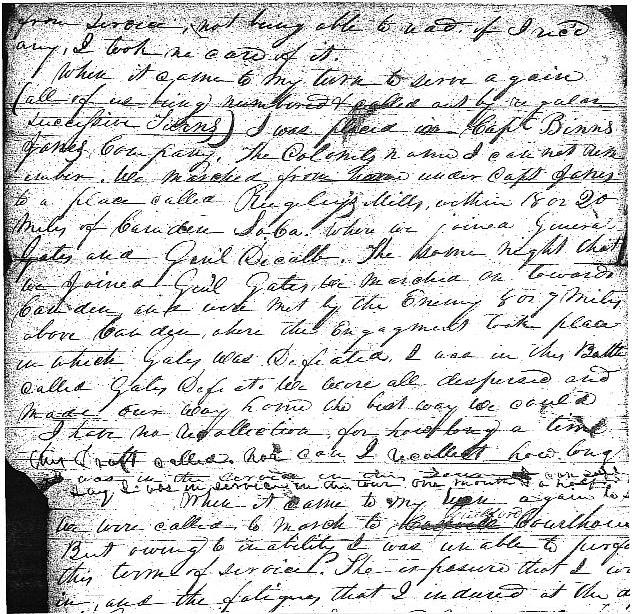 from service, not being able to read. if I rec'd
any, I took no care of it.
When it came to my turn to serve again
(all of us being numbered & called out by regular
successive Turns) I was placed in Capt Binns
Jones Company. The Colonels name I can not rem
ember. We marched from home under Capt Jones
to a place called Rugeley's Mills, within 18 or 20
miles of Camden So Ca. where we joined General
Gates and Genl Decalb. The same night that
we joined Genl Gates, we marched on towards
Camden and were met by the Enemy 8 or 9 Miles
above Camden, where the Engagment took place
in which Gates was Defeated. I was in this Battle
called Gates Defeat. We were all despersed and
made our way home the best way we could
I have no recollection for how long a time
this Draft called. nor can I recollect how long
I was in the service in this
say I was in service in this tour one month & a half
When it came to my turn again to
we were called to march to Guilford Courthouse
But owing to inability I was unable to perfo
this term of service. The exposure that I w
in, and the fatigues that I indured at the d